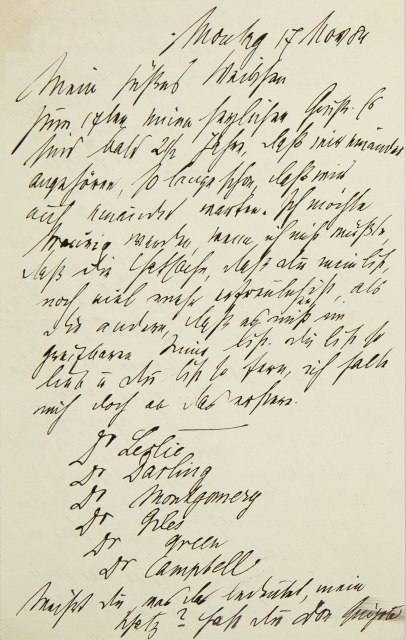 Montag 17 Nov 84
Mein süßes Weibchen
Zum 17ten meinen herzlichen Gruß. Es
sind bald 2½ Jahre, daß wir einander
angehören, so lange schon, daß wir
auf einander warten. Ich möchte
traurig werden, wenn ich nicht wüßte
daß die Thatsache, daß du mein bist,
noch viel mehr erfreulich ist, als
die andere, daß es nicht im
greifbaren Sinne ist. Du bist so
lieb u du bist so fern, ich halte
mich doch an das erstere.
Dr Leslie
Dr Darling
Dr Montgomery
Dr Giles
Dr Green
Dr Campbell
Weißt du was das bedeutet, mein
Schatz? Hast du den